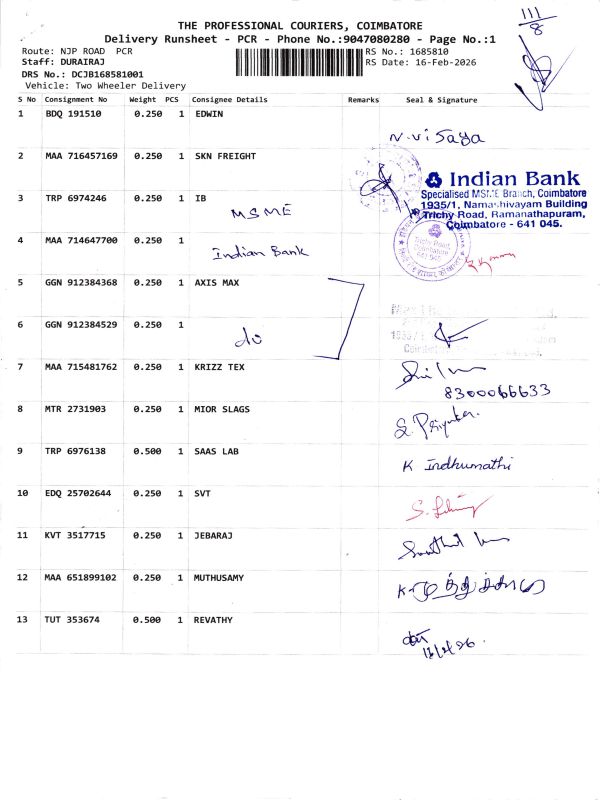 111
8
THE PROFESSIONAL COURIERS, COIMBATORE
Delivery Runsheet - PCR - Phone No.:9047080280 - Page No.:1
Route: NJP ROAD PCR
Staff: DURAIRAJ
DRS No.: DCJB168581001
Vehicle: Two Wheeler Delivery
RS No.: 1685810
RS Date: 16-Feb-2026
S No Consignment No Weight PCS Consignee Details Remarks Seal & Signature
1 BDQ 191510 0.250 1 EDWIN
N. Vi Saya
2 MAA 716457169 0.250 1 SKN FREIGHT
Indian Bank
Specialised MSME Branch, Coimbatore
1935/1, Namashivayam Building
Trichy Road, Ramanathapuram,
Coimbatore - 641 045.
3 TRP 6974246 0.250 1 IB
MSME
4 MAA 714647700 0.250 1
Indian Bank
Trichy Road
Coimbatore
641 045
5 GGN 912384368 0.250 1 AXIS MAX
6 GGN 912384529 0.250 1
do
7 MAA 715481762 0.250 1 KRIZZ TEX
8300066633
8 MTR 2731903 0.250 1 MIOR SLAGS
S. Priyanka.
9 TRP 6976138 0.500 1 SAAS LAB
K Indhumathi
10 EDQ 25702644 0.250 1 SVT
11 KVT 3517715 0.250 1 JEBARAJ
12 MAA 651899102 0.250 1 MUTHUSAMY
13 TUT 353674 0.500 1 REVATHY